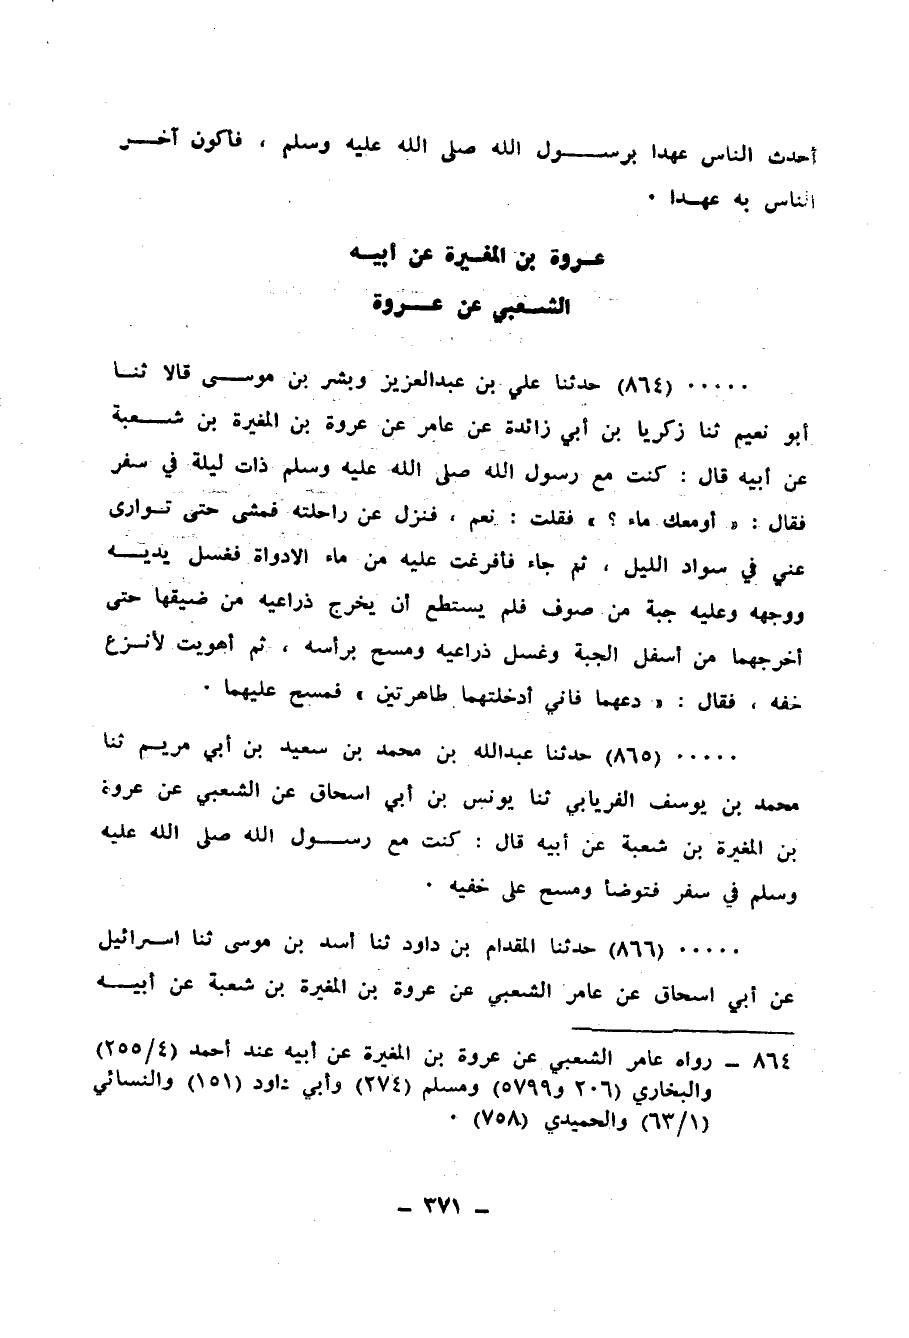 أحدث الناس عهدا برســـــول الله صلى الله عليه وسلم ، فأكون آخــر
الناس به عهـدا .
عـروة بن المغـيرة عن أبيـه
الشـعبي عن عـــروة
..... (٨٦٤) حدثنا علي بن عبدالعزيز وبشر بن موســـى قالا ثنـا
أبو نعيم ثنا زكريا بن أبي زائدة عن عامر عن عروة بن المغيرة بن شــعبة
عن أبيه قال : كنت مع رسول الله صلى الله عليه وسلم ذات ليلة في سفر
فقال : « أومعك ماء ؟ » فقلت : نعم ، فنزل عن راحلته فمشى حتى تـوارى
عني في سواد الليل ، ثم جاء فأفرغت عليه من ماء الادواة فغسل يديــه
ووجهه وعليه جبة من صوف فلم يستطع أن يخرج ذراعيه من ضيقها حتى
أخرجهما من أسفل الجبة وغسل ذراعيه ومسح برأسه ، ثم أهويت لأنـزع
خفه ، فقال : « دعهما فاني أدخلتهما طاهرتين » فمسح عليهما .
..... (٨٦٥) حدثنا عبدالله بن محمد بن سعيد بن أبي مريـم ثنا
محمد بن يوسف الفريابي ثنا يونس بن أبي اسحاق عن الشعبي عن عروة
بن المغيرة بن شعبة عن أبيه قال : كنت مع رســـول الله صلى الله عليه
وسلم في سفر فتوضأ ومسح على خفيه .
..... (٨٦٦) حدثنا المقدام بن داود ثنا أسد بن موسى ثنا اسـرائيل
عن أبي اسحاق عن عامر الشعبي عن عروة بن المغيرة بن شعبة عن أبيــه
٨٦٤ ـ رواه عامر الشعبي عن عروة بن المغيرة عن أبيه عند أحمد (٢٥٥/٤)
والبخاري (٢٠٦ و٥٧٩٩) ومسلم (٢٧٤) وأبي داود (١٥١) والنسائي
(٦٣/١) والحميدي (٧٥٨) .
ـ ٣٧١ ـ